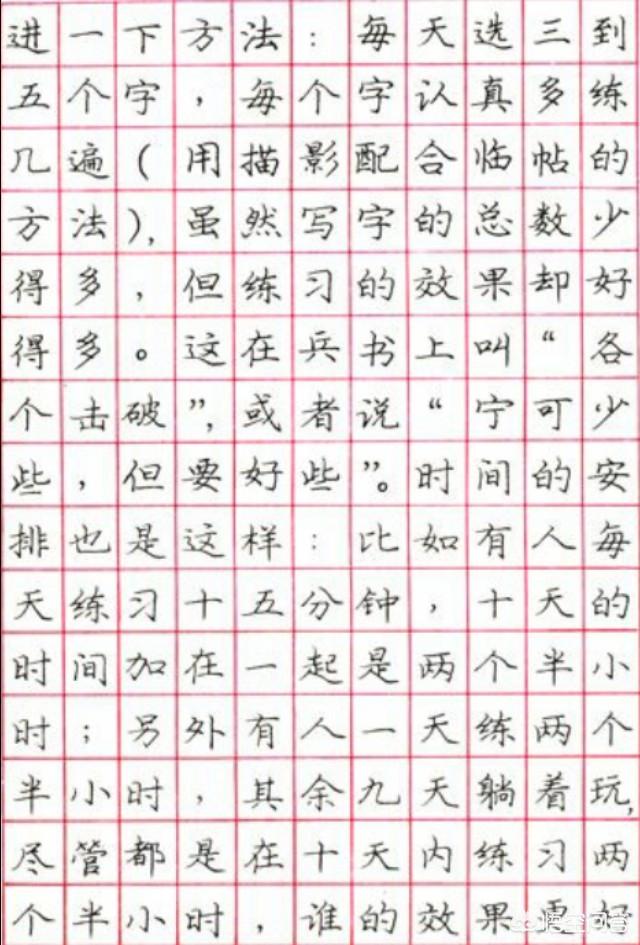 进一下方法：每天选三到
五个字，每个字认真多练
几遍（用描影配合临帖的
方法），虽然写字的总数少
得多，但练习的效果却好
得多。这在兵书上叫“各
个击破”，或者说“宁可少
些，但要好些”。时间的安
排也是这样：比如有人每
天练习十五分钟，十天的
时间加在一起是两个半小
时；另外有人一天练两个
半小时，其余九天躺着玩，
尽管都是在十天内练习两
个半小时，谁的效果更好
悟空问答